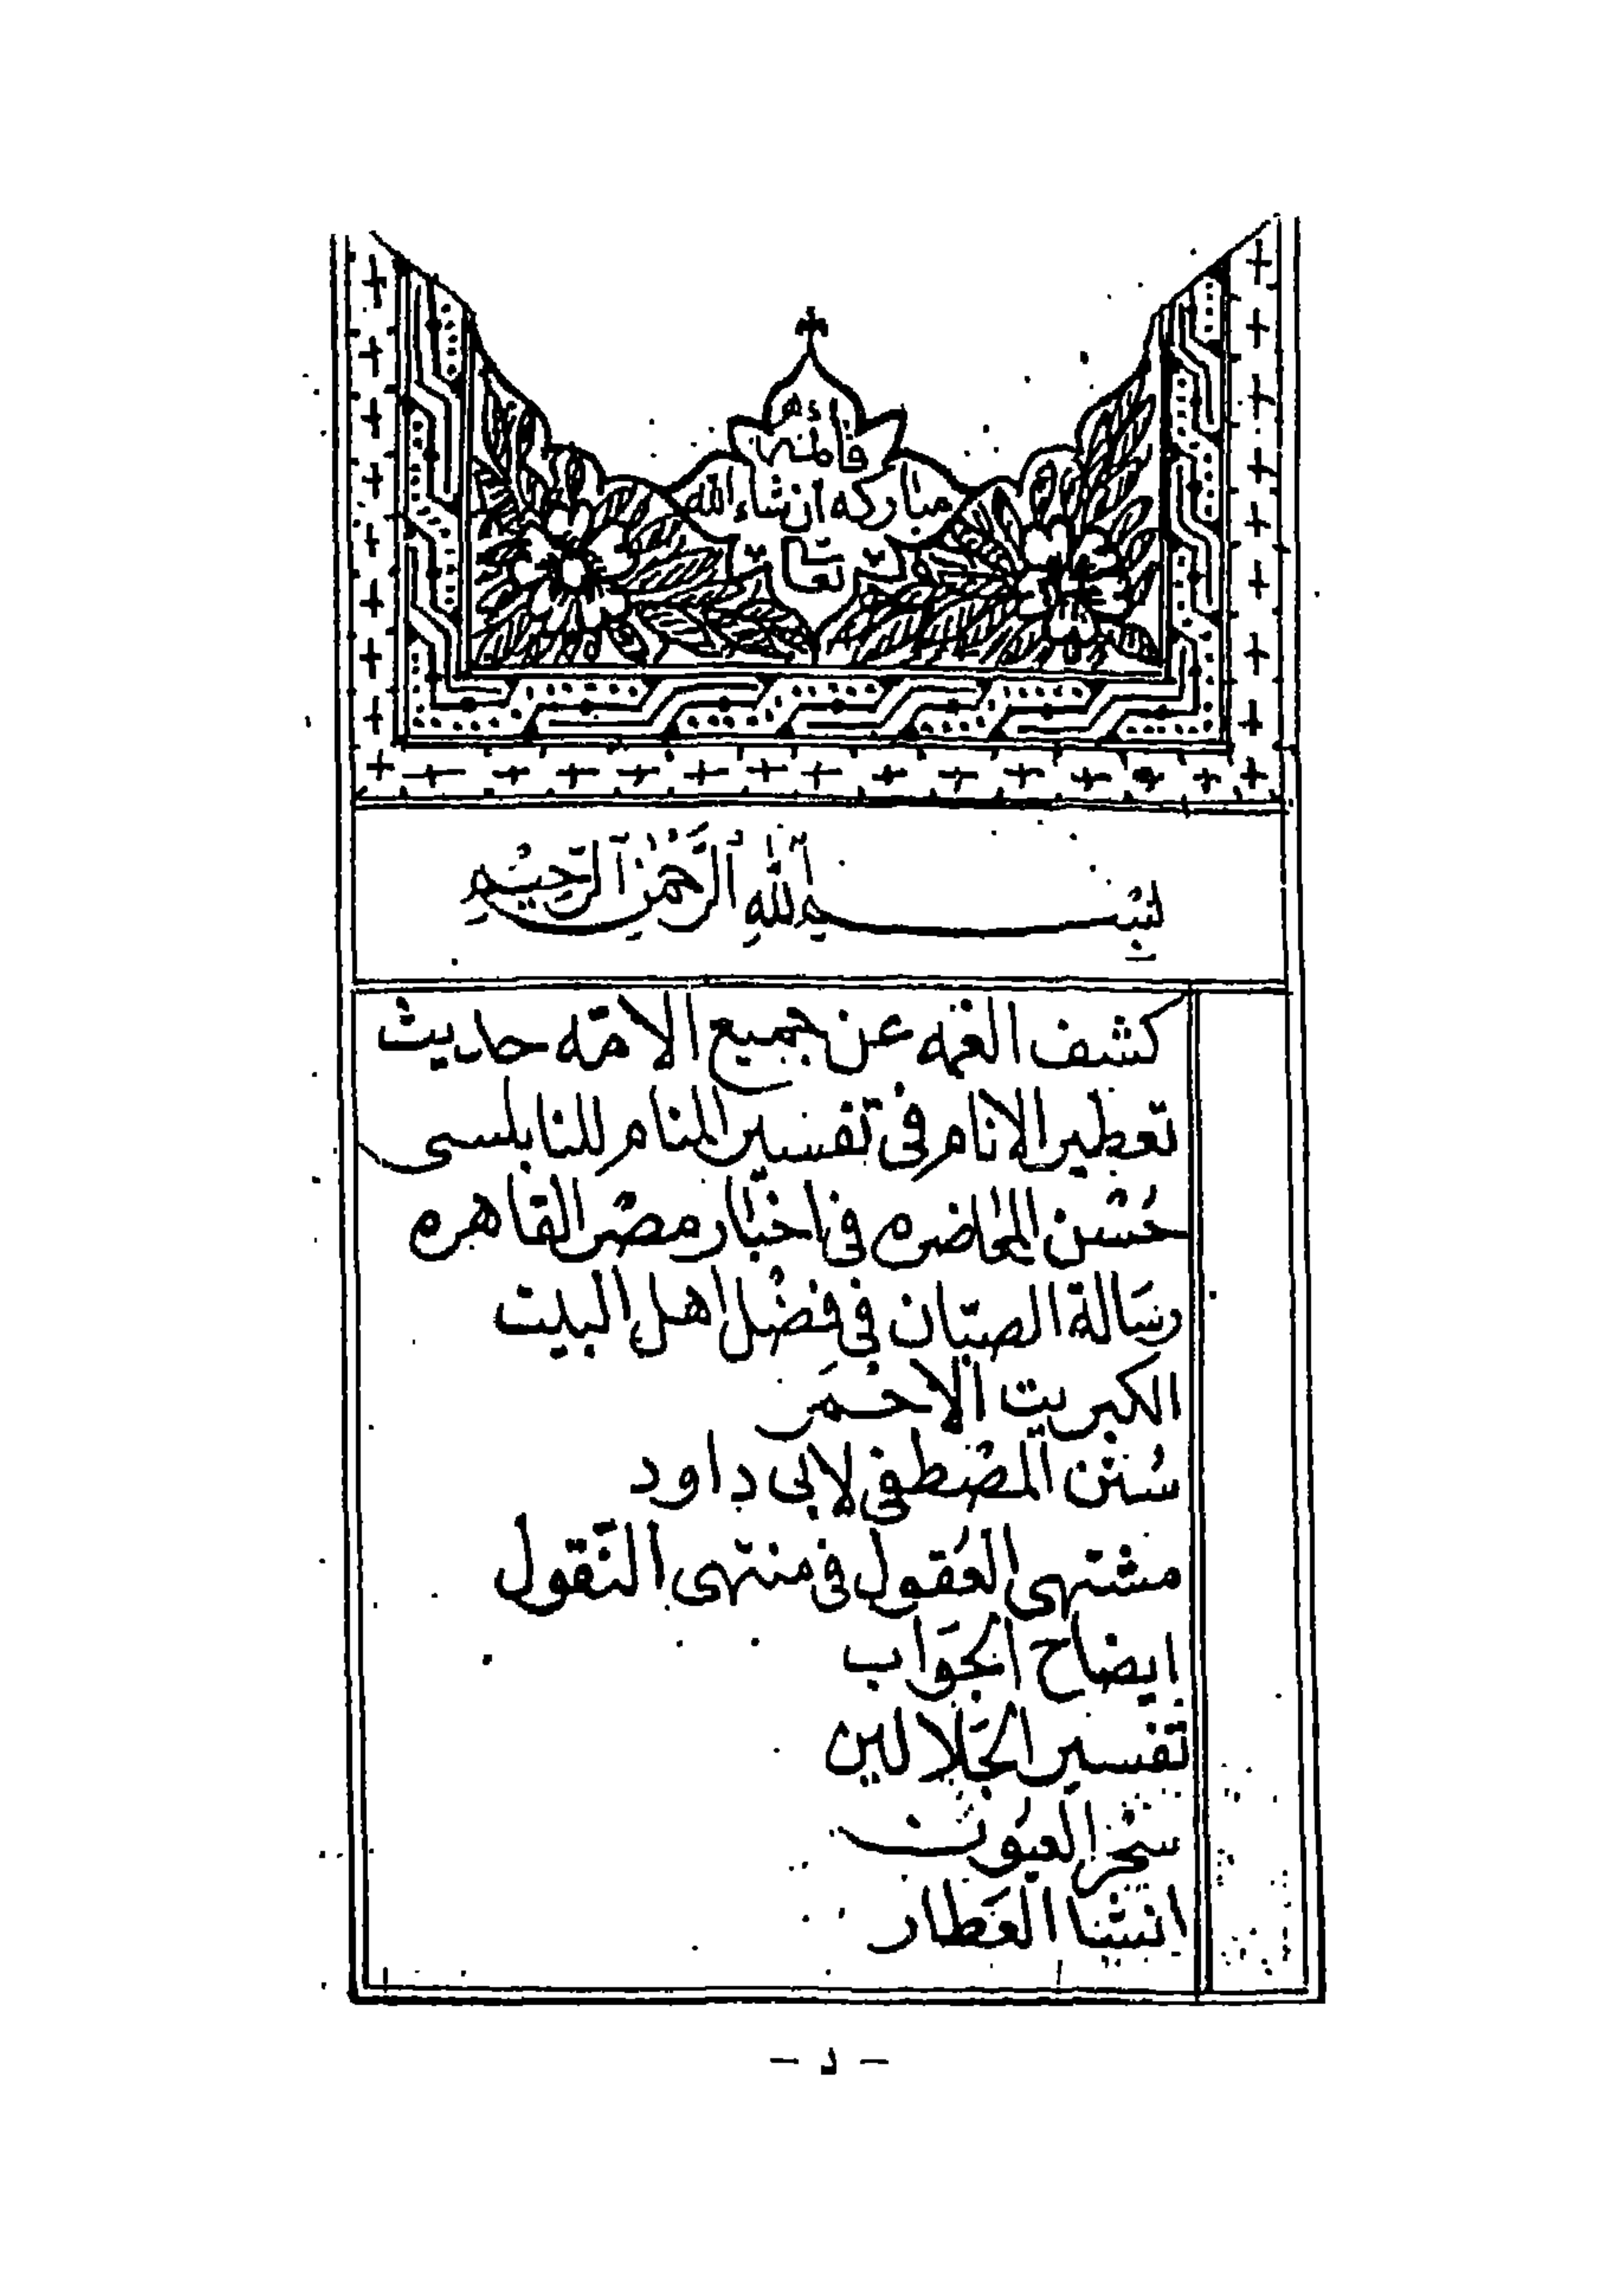 قائمه
مباركه ان شاء الله
تعا
بسم الله الرحمن الرحيم
كشف الغمه عن جميع الامّه حديث
تعطير الانام فى تفسير المنام للنابلسى
حُسْن المحاضره فى اخبار مصْر القاهره
رسَالة الصبّان فى فضْل اهل البيت
الكبريت الاحْمَر
سُنن المصْطفى لابى داود
مشتهى العُقول فى منتهى النّقول
ايضاح الجوَاب
تفسير الجَلالين
سحْر العيون
انشا العَطار
- د -